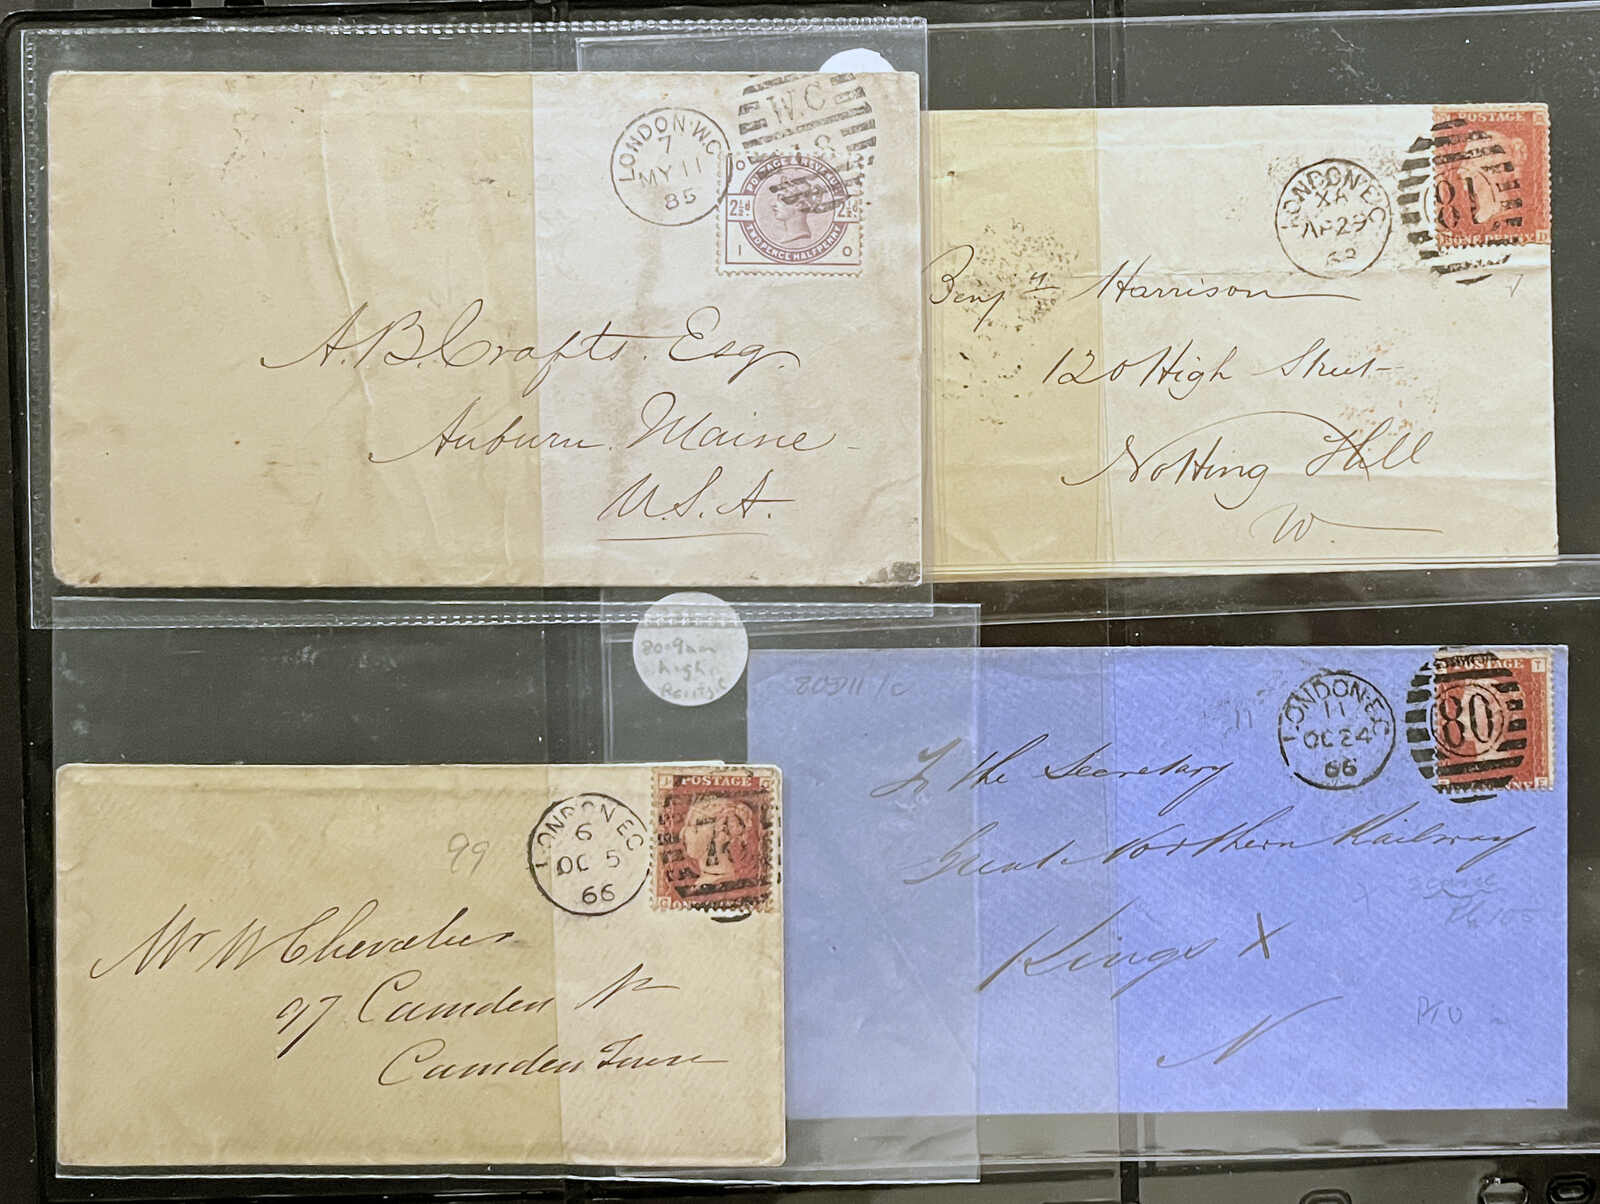 LONDON·W.C
7
MY 11
85
W.C
8
POSTAGE & REVENUE
2½d. 2½d.
TWO PENCE HALFPENNY
O
I O
A. B. Crafts. Esq.
Auburn. Maine
U.S.A.
LONDON·E.C
XA
AP 29
68
POSTAGE
ONE PENNY
D
Benjn Harrison
120 High Street
Notting Hill
W.
80.9mm
high
LONDON·EC
6
OC 5
66
POSTAGE
99
Mr W Chevalier
97 Camden
Camden Town
LONDON·EC
11
OC 24
66
80
POSTAGE
T
To the Secretary
Great Northern Railway
Kings X
N
PTO